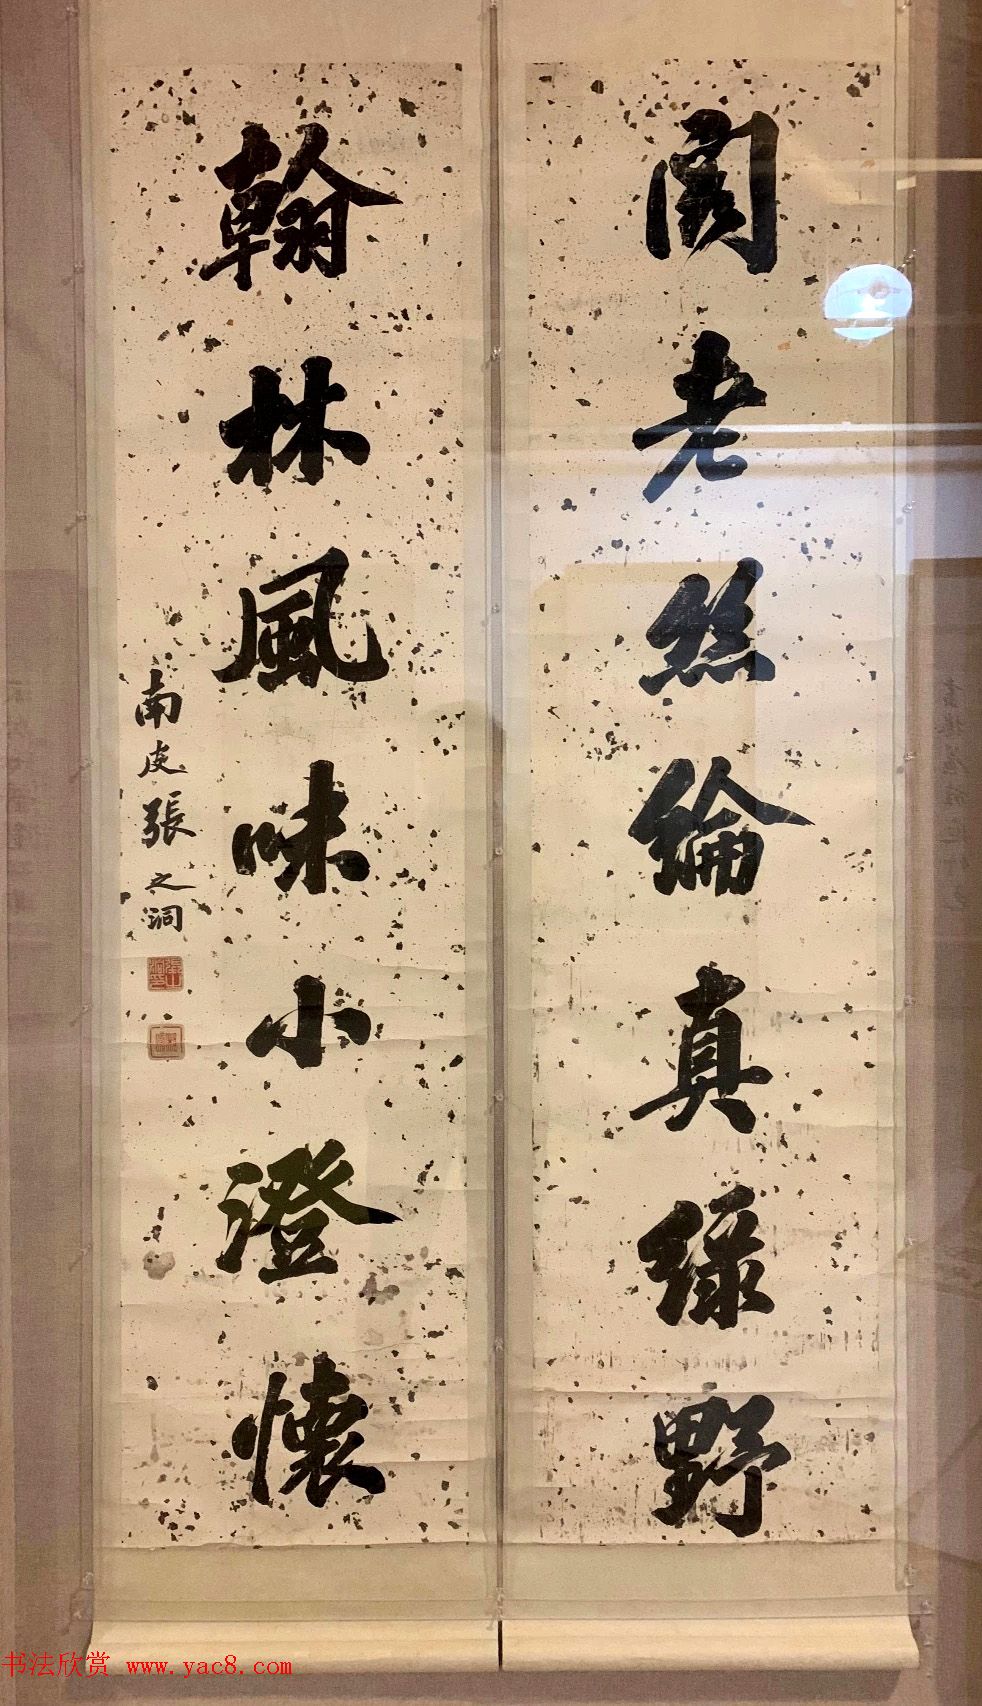 閣老絲綸真綠野
翰林風味小澄懷
南皮張之洞
張之洞印
书法欣赏 www.yac8.com